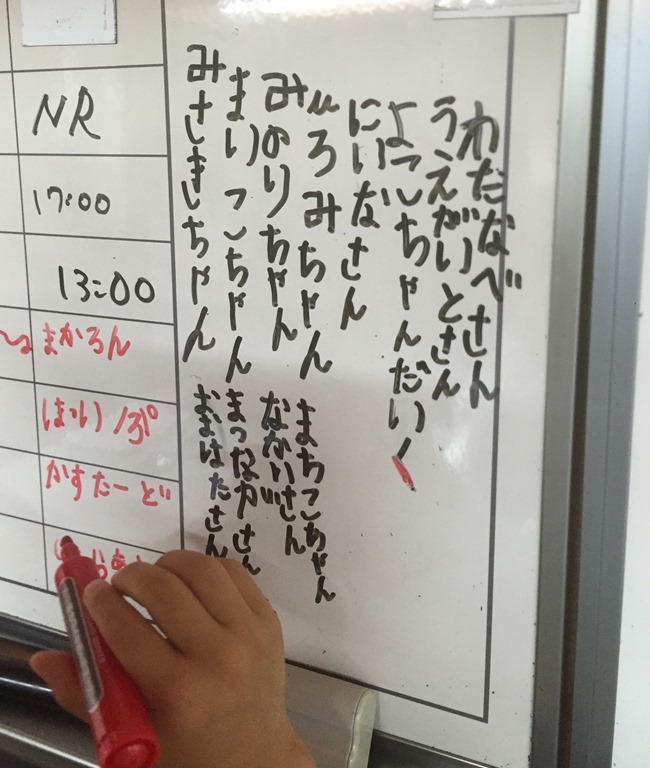 わたなべさん
うえだいとさん
よつこちゃんだい
にいなさん
ひろみちゃん
まちこちゃん
みのりちゃん
なかいさん
まりこちゃん
まつながさん
みさきちゃん
おまはたさん
NR
17:00
13:00
まかろん
かすたーど